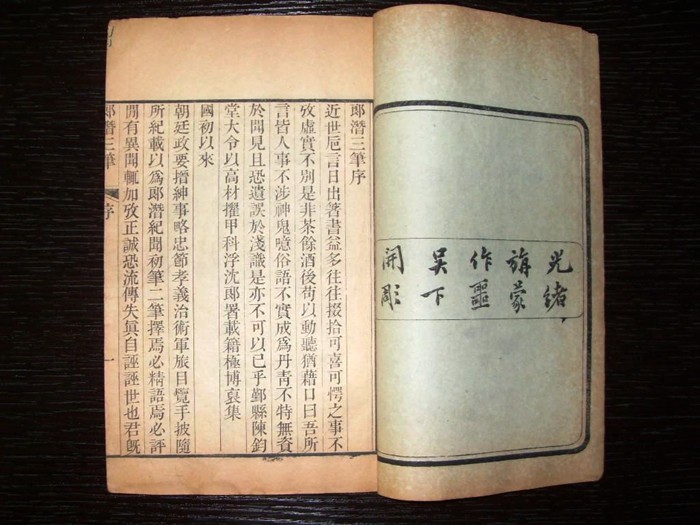 光緒
旃蒙
作噩
吳下
開彫
郎潛三筆序
近世巵言日出著書益多往往掇拾可喜可愕之事不
攷虛實不別是非茶餘酒後苟以動聽猶藉口曰吾所
言皆人事不涉神鬼噫俗語不實成爲丹靑不特無資
於聞見且恐遺誤於淺識是亦不可以已乎鄞縣陳鈞
堂大令以高材擢甲科浮沈郞署載籍極博裒集
國初以來
朝廷政要搢紳事略忠節孝義治術軍旅目覽手披隨
所紀載以爲郎潛紀聞初筆二筆擇焉必精語焉必詳
閒有異聞輒加攷正誠恐流傳失眞自誣誣世也君旣
郎潛三筆 序 一